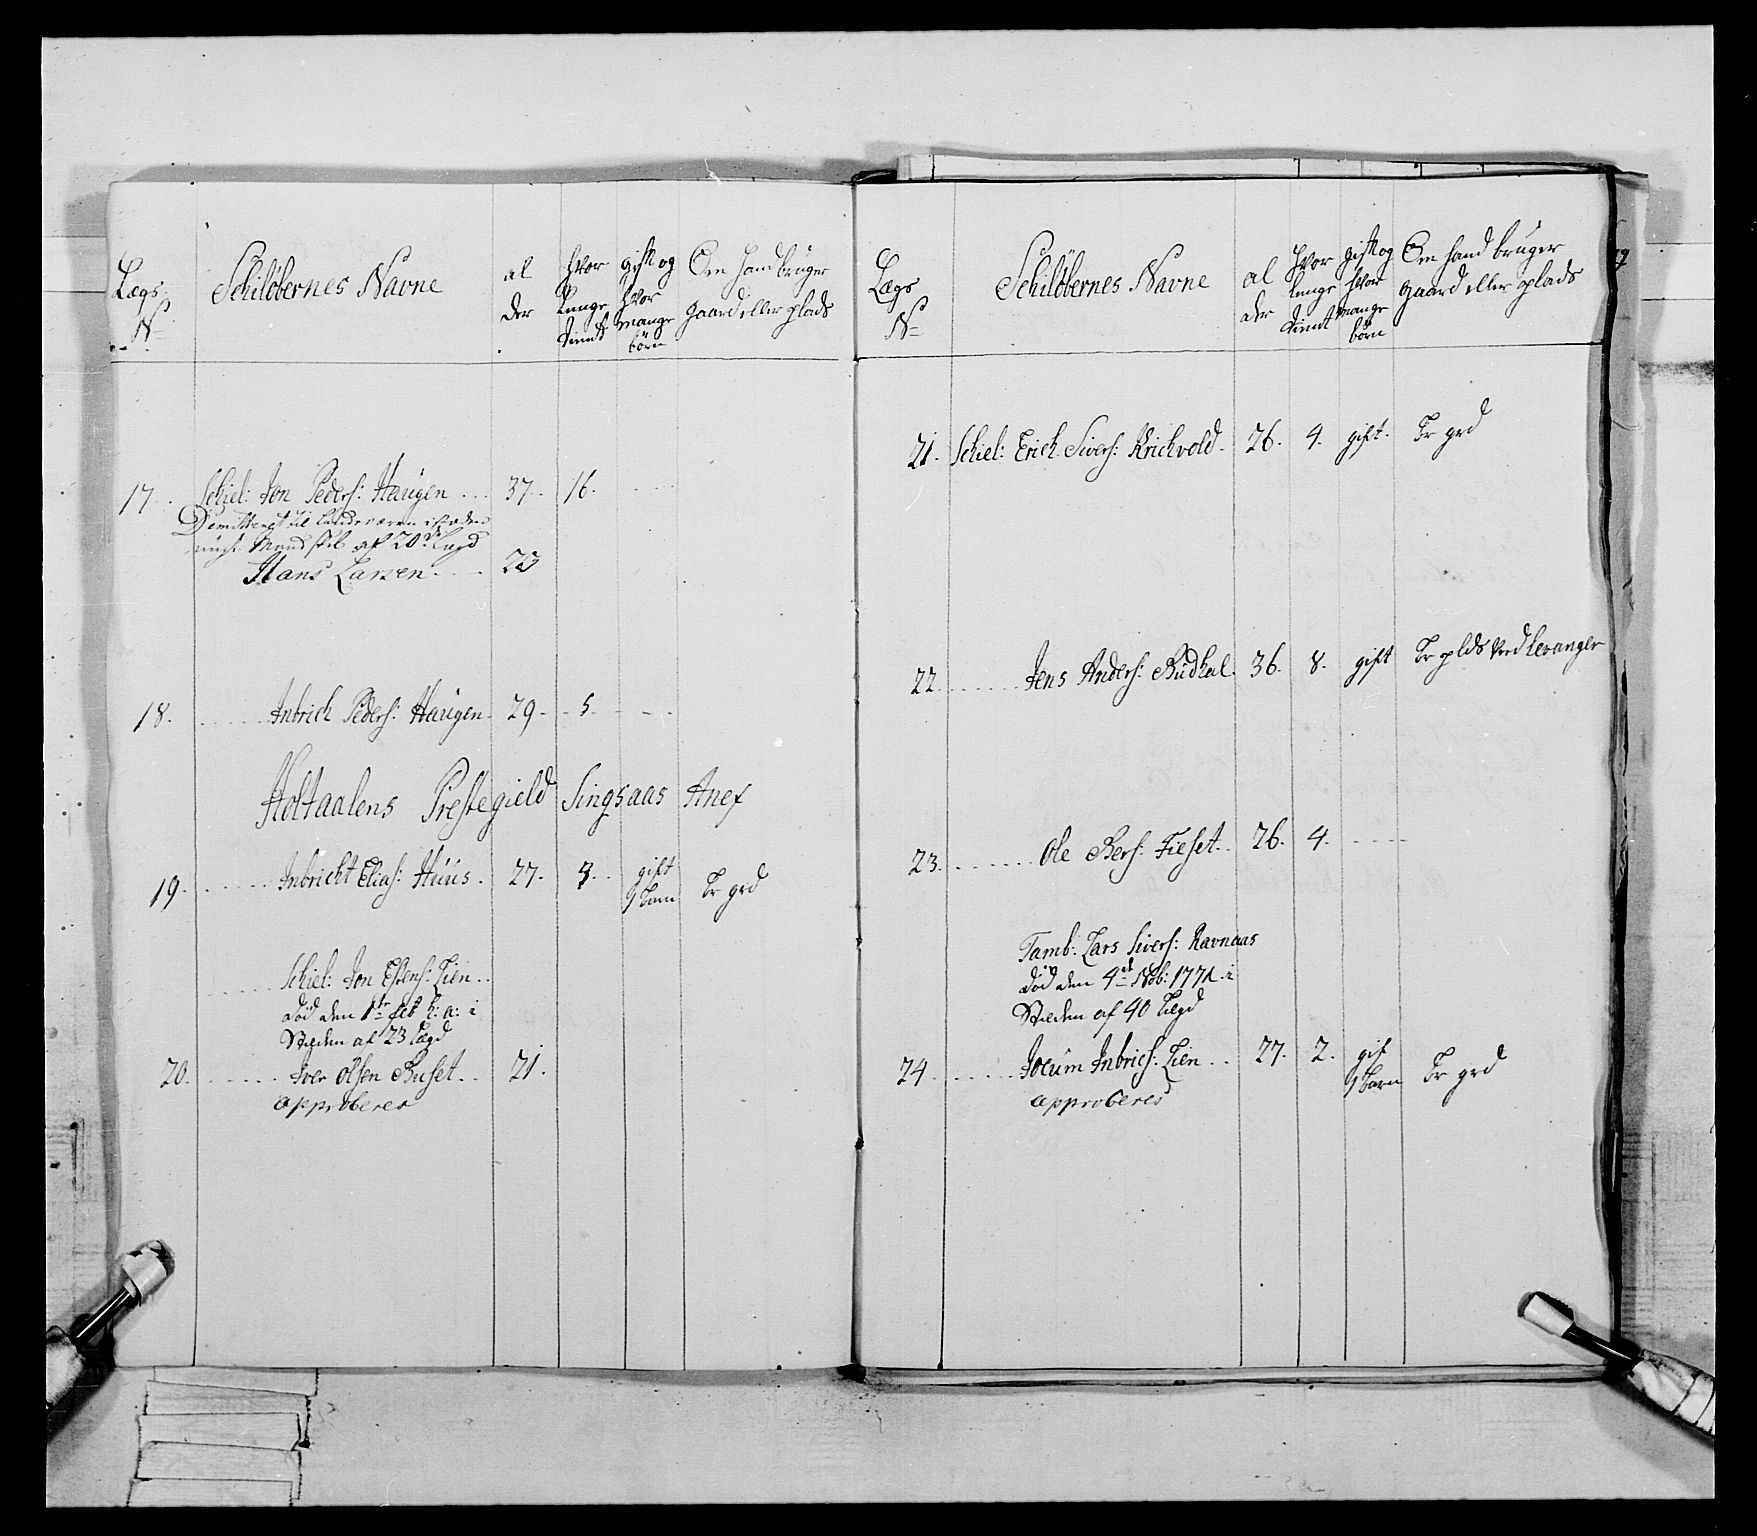 Lægs N= Schilöbernes Navne al der hvor lenge tient gift og hvor mange börn Om hand bruger gaard eller plads
17. Schiel: Jon Peders: Haugen 37. 16.
Demitteret til landeværn i stæden
af 20de Lægd
Hans Larsen 22
18. Inbrich Peders: Haugen 29. 5.
Holtaalens Prestegield Singsaas Anex
19. Inbricht Elias: Huus. 27. 3. gift 1 barn br grd
Schiel: Jon Estens: Lien
död den 1te feb h: a: i
Stæden af 23 Lægd
20. Iver Olsen Buset 21.
approberes
Lægs N= Schilöbernes Navne al der hvor lenge tient gift og hvor mange börn Om hand bruger gaard eller plads
21. Schiel: Erich Sivers: Krichvold 26. 4. gift. br grd
22. Jens Anders: Budhal 36. 8. gift br plds ved levanger
23. Ole Bers: Fieset 26. 4.
Tamb: Lars Sivers: Ravnaas
död den 4de Nob: 1771 i
Stæden af 40 Lægd
24. Jocum Inbrics: Lien 27. 2. gif 1 barn br grd
approberes